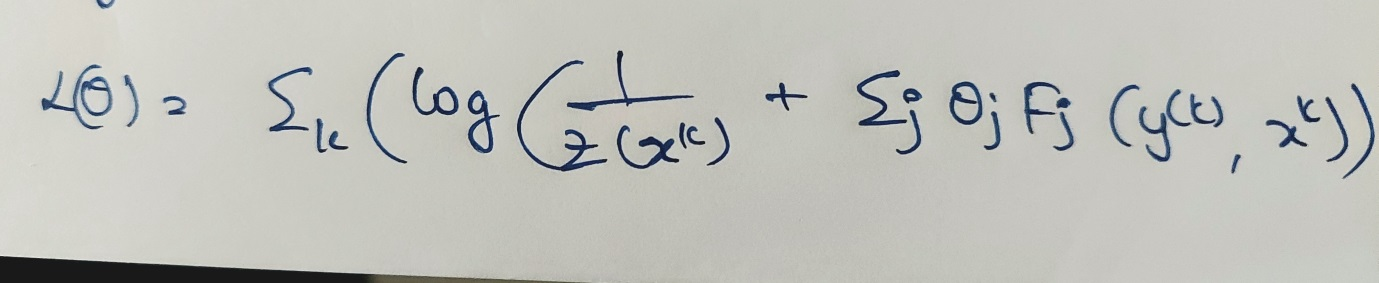 L(θ) = Σ_k (log (1/z(x^k) + Σ_j θ_j F_j (y^(k), x^k))